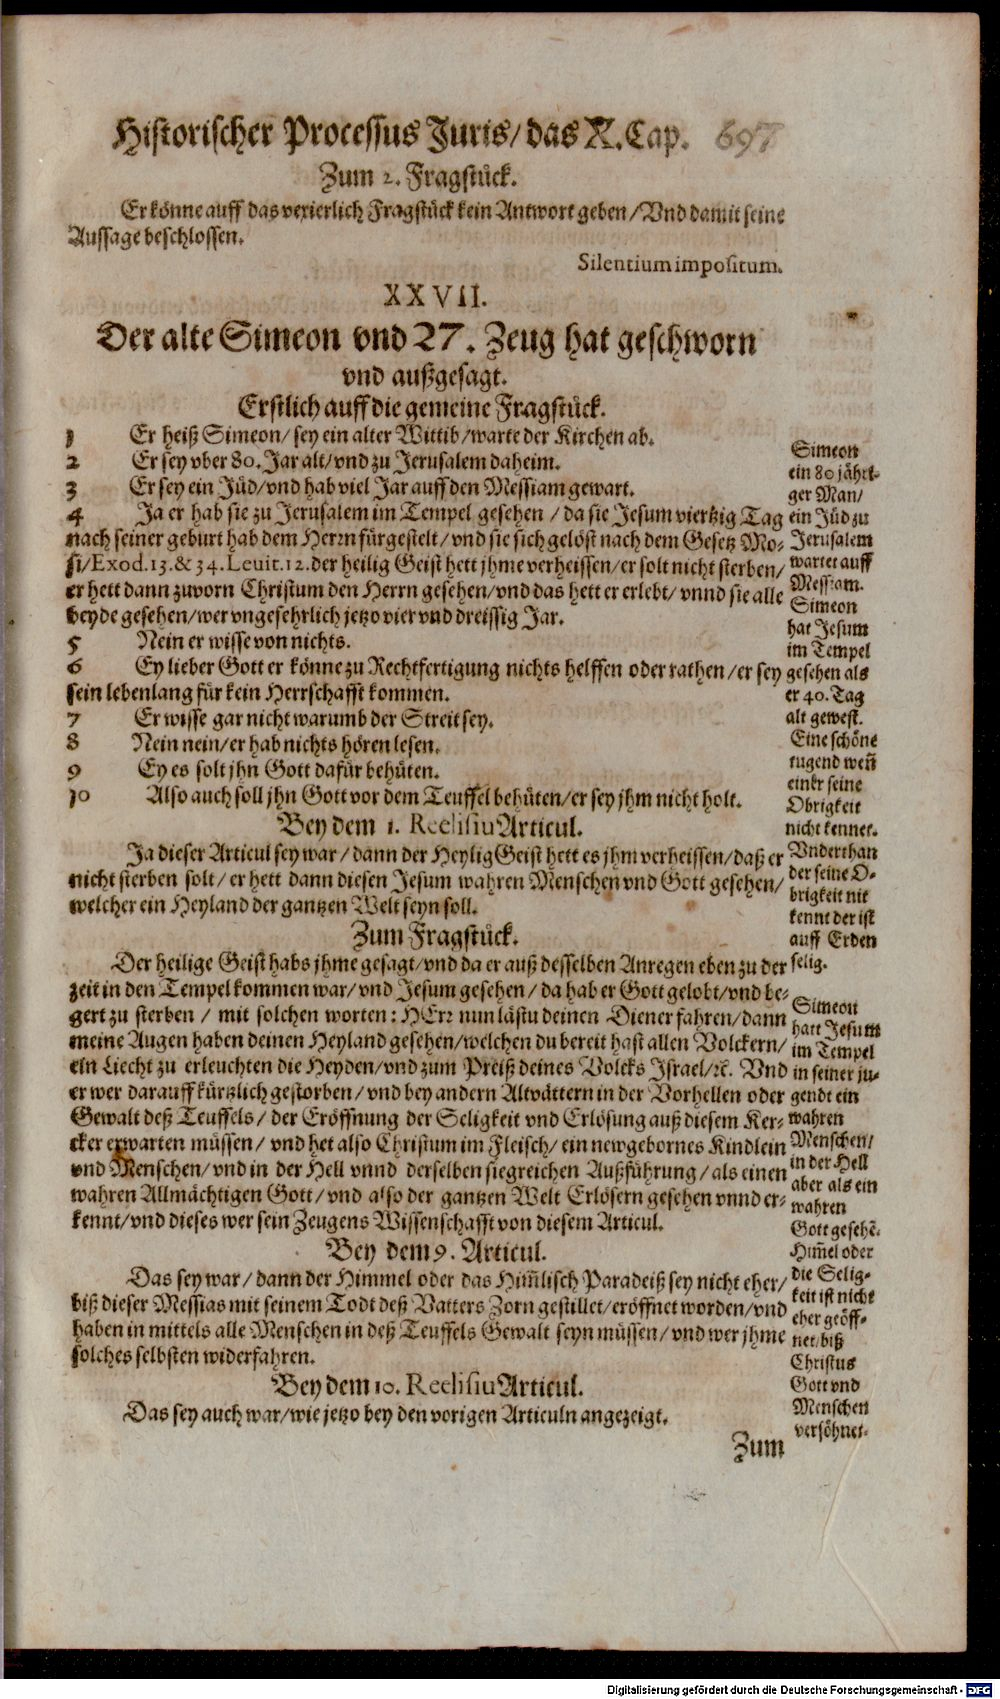 Historischer Processus Juris/ das X. Cap. 697
Zum 2. Fragstück.
Er könne auff das vexierlich Fragstück kein Antwort geben/ Vnd damit seine
Aussage beschlossen.
Silentium impositum.
XXVII.
Der alte Simeon vnd 27. Zeug hat geschworn
vnd außgesagt.
Erstlich auff die gemeine Fragstück.
1 Er heiß Simeon/ sey ein alter Wittib/ warte der Kirchen ab.
2 Er sey vber 80. Jar alt/ vnd zu Jerusalem daheim.
3 Er sey ein Jüd/ vnd hab viel Jar auff den Messiam gewart.
4 Ja er hab sie zu Jerusalem im Tempel gesehen / da sie Jesum viertzig Tag
nach seiner geburt hab dem Herrn fürgestelt/ vnd sie sich gelöst nach dem Gesetz Mo-
si/ Exod. 13. & 34. Leuit. 12. der heilig Geist hett jhme verheissen/ er solt nicht sterben/
er hett dann zuvorn Christum den Herrn gesehen/ vnd das hett er erlebt/ vnnd sie alle
beyde gesehen/ wer vngesehrlich jetzo vier vnd dreissig Jar.
5 Nein er wisse von nichts.
6 Ey lieber Gott er könne zu Rechtfertigung nichts helffen oder rathen/ er sey
sein lebenlang für kein Herrschafft kommen.
7 Er wisse gar nicht warumb der Streit sey.
8 Nein nein/ er hab nichts hören lesen.
9 Ey es solt jhn Gott dafür behüten.
10 Also auch soll jhn Gott vor dem Teuffel behüten/ er sey jhm nicht holt.
Bey dem 1. Reelisiu Articul.
Ja dieser Articul sey war / dann der Heylig Geist hett es jhm verheissen/ daß er
nicht sterben solt/ er hett dann diesen Jesum wahren Menschen vnd Gott gesehen/
welcher ein Heyland der gantzen Welt seyn soll.
Zum Fragstück.
Der heilige Geist habs jhme gesagt/ vnd da er auß desselben Anregen eben zu der
zeit in den Tempel kommen war/ vnd Jesum gesehen/ da hab er Gott gelobt/ vnd be-
gert zu sterben / mit solchen worten: HErr nun lästu deinen Diener fahren/ dann
meine Augen haben deinen Heyland gesehen/ welchen du bereit hast allen Volckern/
ein Liecht zu erleuchten die Heyden/ vnd zum Preiß deines Volcks Israel/ ꝛc. Vnd
er wer darauff kürtzlich gestorben/ vnd bey andern Altvättern in der Vorhellen oder
Gewalt deß Teuffels/ der Eröffnung der Seligkeit vnd Erlösung auß diesem Ker-
cker erwarten müssen/ vnd het also Christum im Fleisch/ ein newgebornes Kindlein
vnd Menschen/ vnd in der Hell vnnd derselben siegreichen Außführung/ als einen
wahren Allmächtigen Gott/ vnd also der gantzen Welt Erlösern gesehen vnnd er-
kennt/ vnd dieses wer sein Zeugens Wissenschafft von diesem Articul.
Bey dem 9. Articul.
Das sey war/ dann der Himmel oder das Him̃lisch Paradeiß sey nicht eher/
biß dieser Messias mit seinem Todt deß Vatters Zorn gestillet/ eröffnet worden/ vnd
haben in mittels alle Menschen in deß Teuffels Gewalt seyn müssen/ vnd wer jhme
solches selbsten widerfahren.
Bey dem 10. Reelisiu Articul.
Das sey auch war/ wie jetzo bey den vorigen Articuln angezeigt.
Zum
Simeon
ein 80 jähri-
ger Man/
ein Jüd zu
Jerusalem
wartet auff
Messiam.
Simeon
hat Jesum
im Tempel
gesehen als
er 40. Tag
alt gewest.
Eine schöne
tugend weñ
einer seine
Obrigkeit
nicht kennet.
Vnderthan
der seine O-
brigkeit nit
kennt der ist
auff Erden
selig.
Simeon
hatt Jesum
im Tempel
in seiner ju-
gendt ein
wahren
Menschen/
in der Hell
aber als ein
wahren
Gott gesehẽ.
Him̃el oder
die Selig-
keit ist nicht
eher geöff-
net/ biß
Christus
Gott vnd
Menschen
versöhnet.
Digitalisierung gefördert durch die Deutsche Forschungsgemeinschaft - DFG